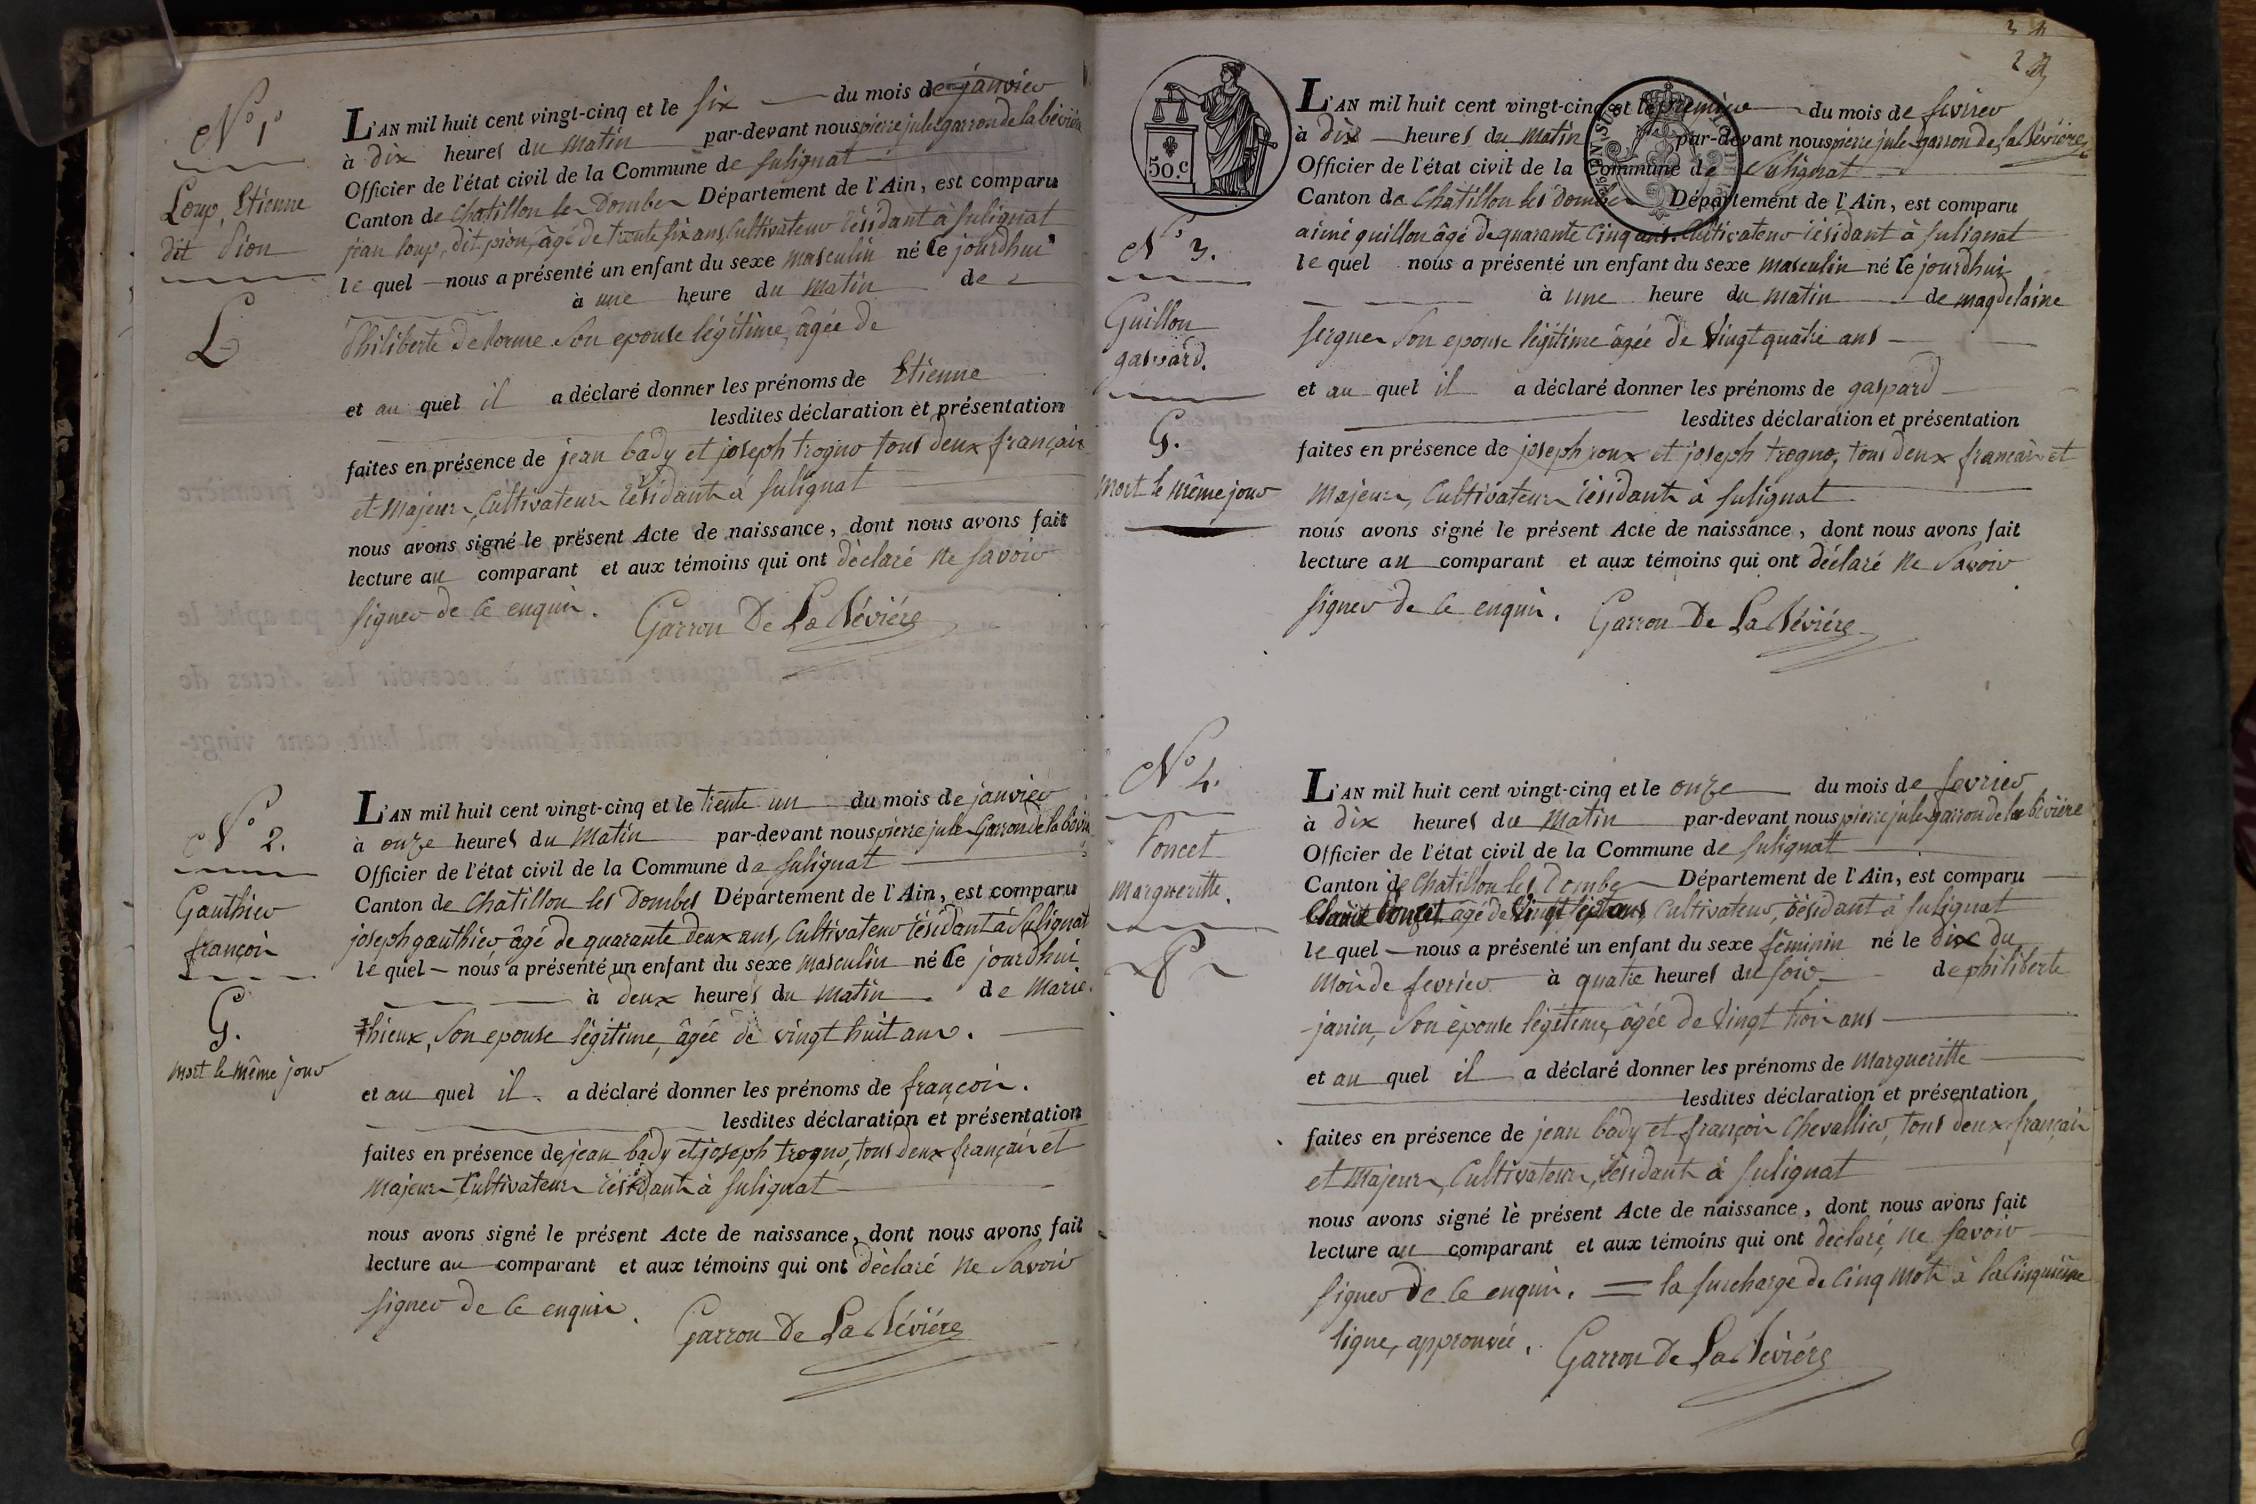 N° 1°
Loup, Etienne
dit Pion
L
L'AN mil huit cent vingt-cinq et le six du mois de janvier
à dix heures du matin par-devant nous pierre jules garron de la bévière
Officier de l'état civil de la Commune de sulignat
Canton de Chatillon les Dombes Département de l'Ain, est comparu
jean loup, dit pion, âgé de trente six ans, Cultivateur résidant à sulignat
le quel nous a présenté un enfant du sexe masculin né ce jourdhui
à une heure du matin de
Philiberte Delorme son epouse légitime, âgée de
et au quel il a déclaré donner les prénoms de Etienne
lesdites déclaration et présentation
faites en présence de jean bady et joseph trogno tous deux français
et majeurs, Cultivateurs résidants à sulignat
nous avons signé le présent Acte de naissance, dont nous avons fait
lecture au comparant et aux témoins qui ont déclaré ne savoir
signer de ce enquis. Garron De La Bévière
N° 2.
Gauthier
françois
G.
mort le même jour
L'AN mil huit cent vingt-cinq et le trente un du mois de janvier
à onze heures du matin par-devant nous pierre jules Garron de la bévière
Officier de l'état civil de la Commune de sulignat
Canton de Chatillon les Dombes Département de l'Ain, est comparu
joseph gauthier âgé de quarante deux ans, Cultivateur résidant à Sulignat
le quel nous a présenté un enfant du sexe masculin né ce jourdhui
à deux heures du matin de Marie
thieux, son epouse légitime, âgée de vingt huit ans.
et au quel il a déclaré donner les prénoms de françois.
lesdites déclaration et présentation
faites en présence de jean bady et joseph trogno, tous deux français et
majeurs Cultivateurs résidants à sulignat
nous avons signé le présent Acte de naissance, dont nous avons fait
lecture au comparant et aux témoins qui ont déclaré ne Savoir
signer de ce enquis. Garron De La Bévière
50. C
N° 3.
Guillon
gaspard.
G.
mort le même jour
L'AN mil huit cent vingt-cinq et le premier du mois de fevrier
à dix heures du matin par-devant nous pierre jules garron de la Bévière
Officier de l'état civil de la Commune de Sulignat
Canton de Chatillon les Dombes Département de l'Ain, est comparu
aimé guillon âgé de quarante Cinq ans Cultivateur résidant à sulignat
le quel nous a présenté un enfant du sexe masculin né ce jourdhui
à une heure du matin de magdelaine
son epouse légitime âgée de vingt quatre ans
et au quel il a déclaré donner les prénoms de gaspard
lesdites déclaration et présentation
faites en présence de joseph roux et joseph trogno, tous deux français et
majeurs, Cultivateurs résidants à sulignat
nous avons signé le présent Acte de naissance, dont nous avons fait
lecture au comparant et aux témoins qui ont déclaré ne Savoir
signer de ce enquis. Garron De La Bévière
N° 4.
Poncet
Margueritte.
P
L'AN mil huit cent vingt-cinq et le onze du mois de fevrier
à dix heures du matin par-devant nous pierre jules garron de la bévière
Officier de l'état civil de la Commune de sulignat
Canton de Chatillon les Dombes Département de l'Ain, est comparu
Claude Poncet âgé de vingt sept ans Cultivateur, résidant à sulignat
le quel nous a présenté un enfant du sexe féminin né le dix du
mois de fevrier à quatre heures du soir de philiberte
janin, son épouse légitime, âgée de vingt trois ans
et au quel il a déclaré donner les prénoms de margueritte
lesdites déclaration et présentation
faites en présence de jean bady et françois Chevallier, tous deux français
et majeurs, Cultivateurs, résidants à sulignat
nous avons signé le présent Acte de naissance, dont nous avons fait
lecture au comparant et aux témoins qui ont déclaré ne savoir
signer de ce enquis. = la surcharge de Cinq mots à la Cinquième
ligne, approuvée. Garron De La Bévière